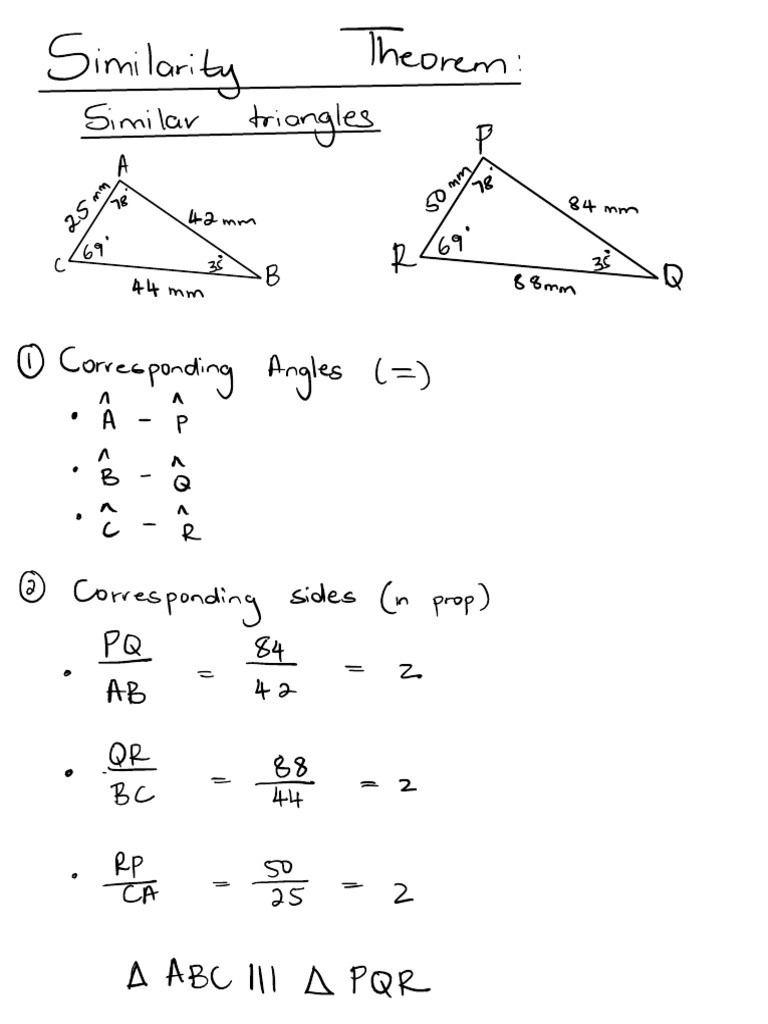 Similarity Theorem:
Similar triangles
A
25 mm
78°
42 mm
C
69°
35°
B
44 mm
P
50 mm
78°
84 mm
R
69°
35°
Q
88mm
① Corresponding Angles (=)
• Â - P̂
• B̂ - Q̂
• Ĉ - R̂
② Corresponding sides (in prop)
• PQ/AB = 84/42 = 2
• QR/BC = 88/44 = 2
• RP/CA = 50/25 = 2
Δ ABC ||| Δ PQR